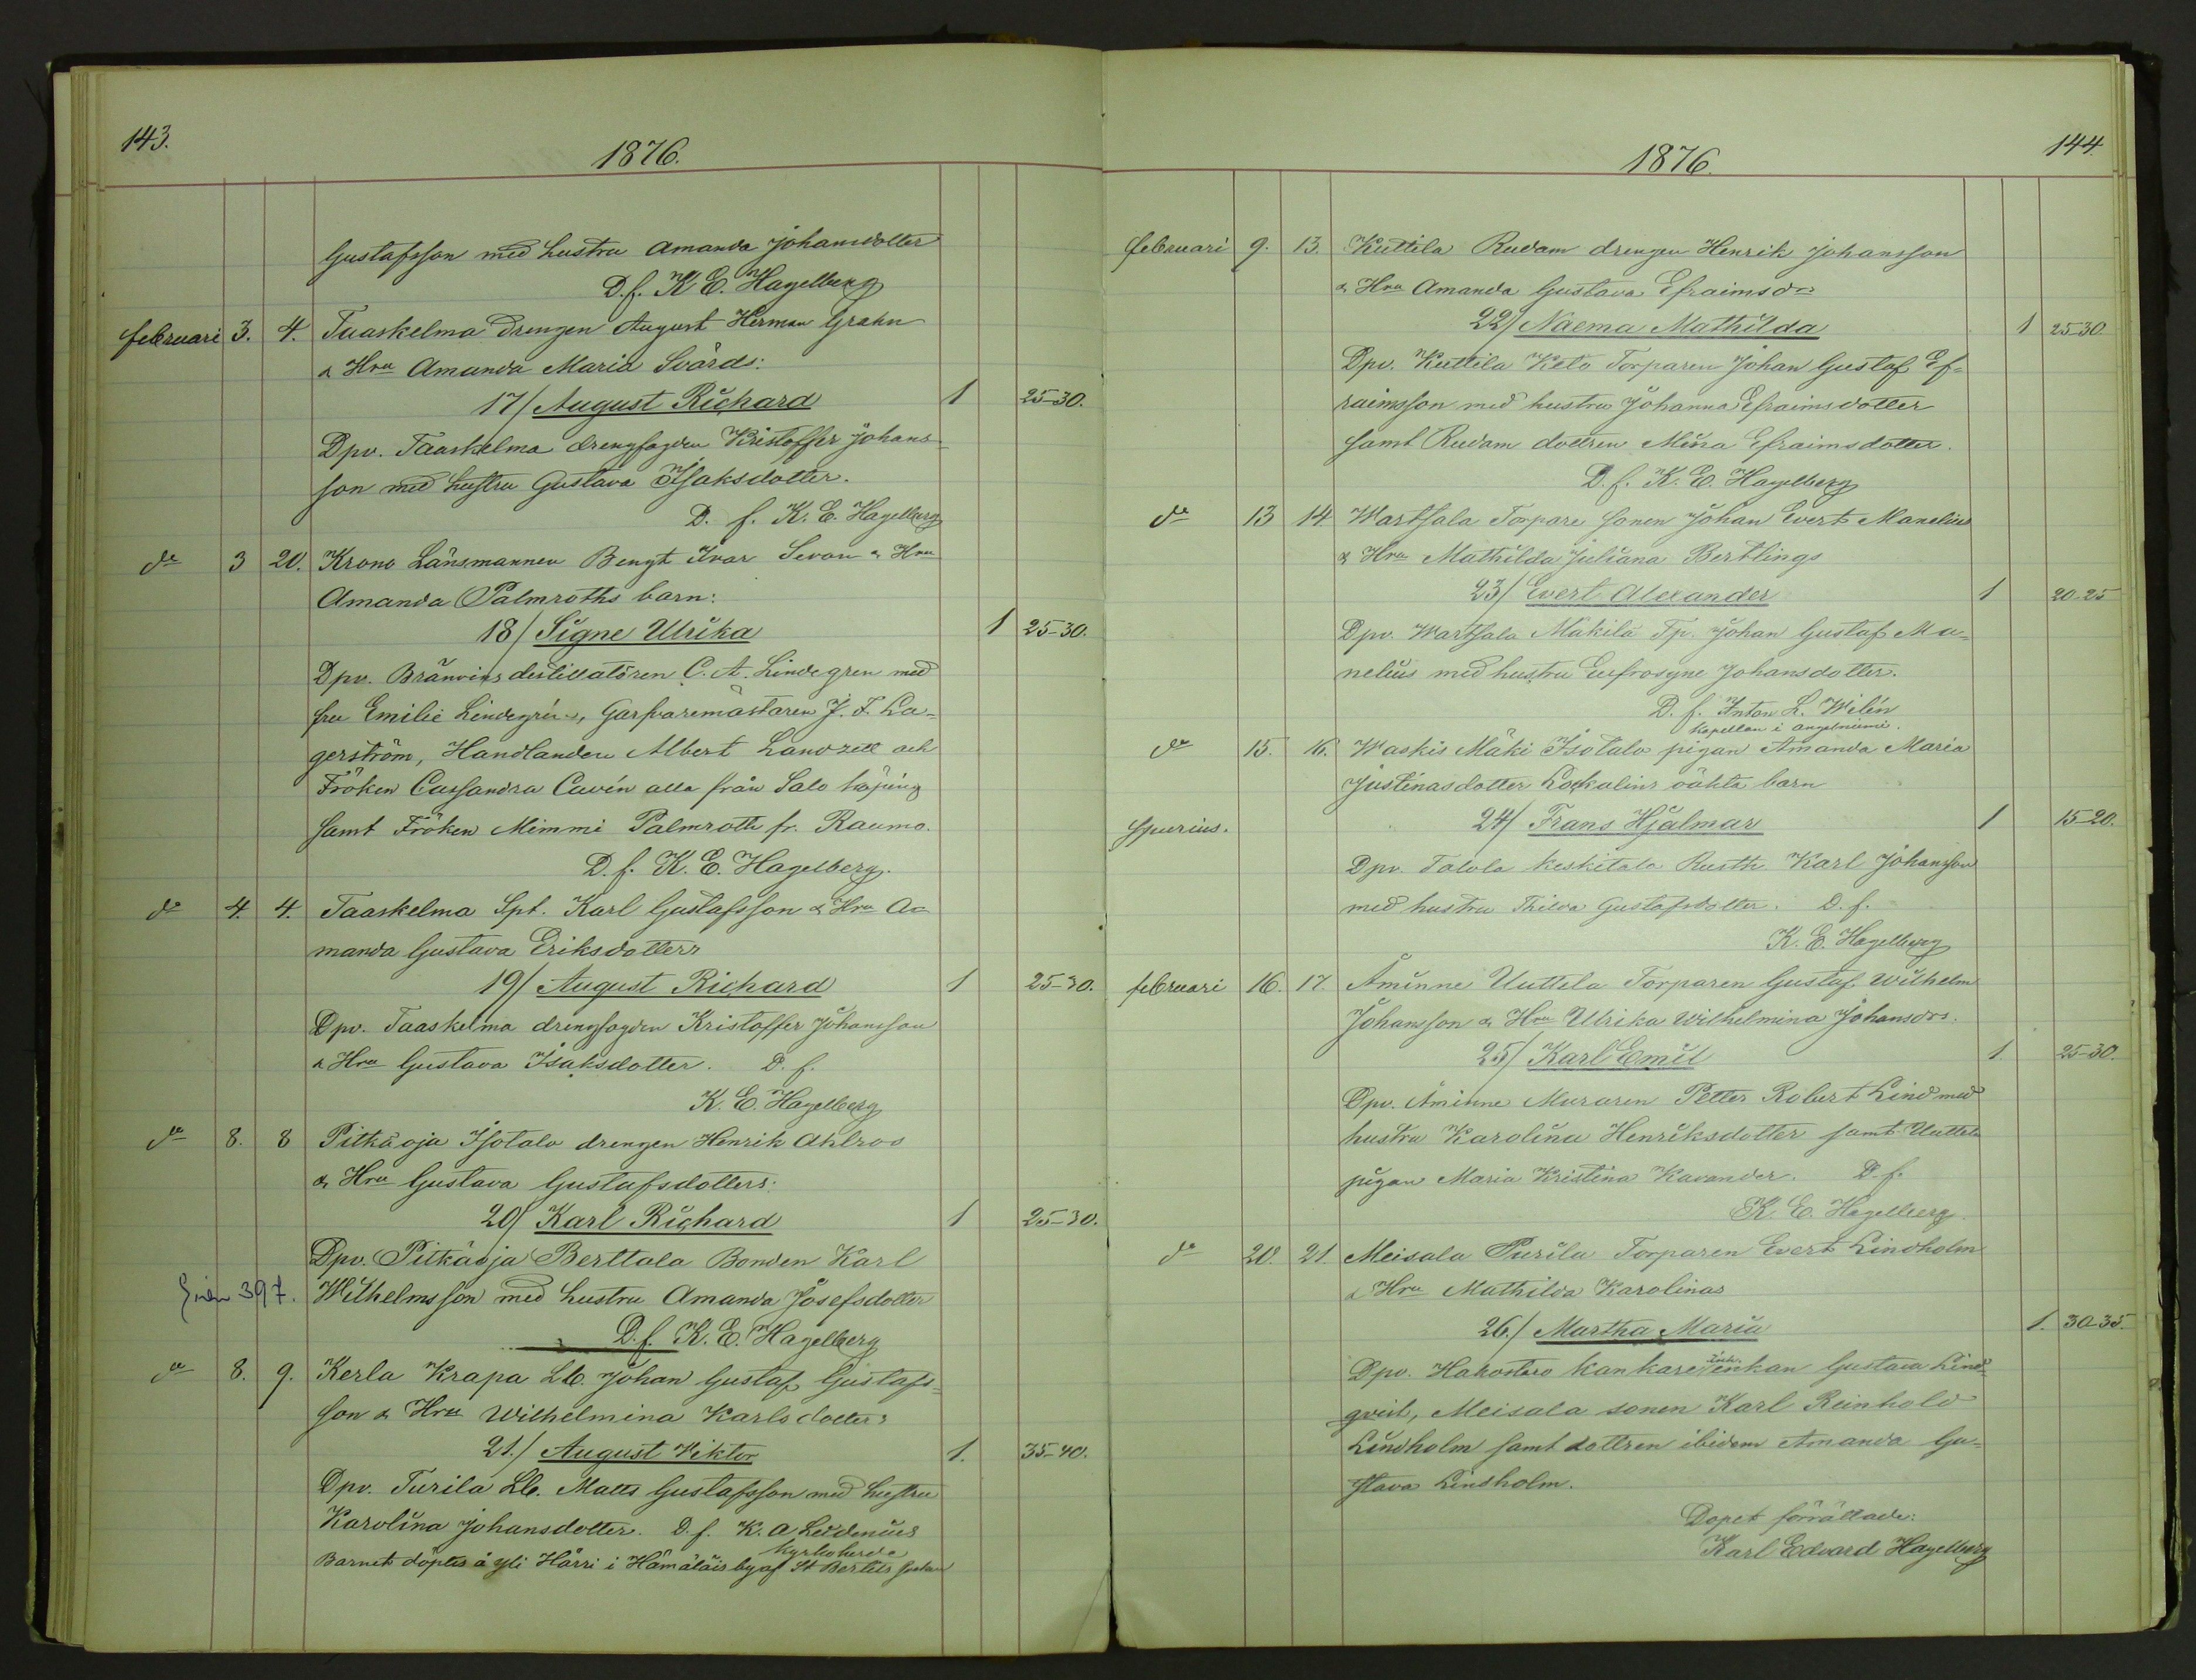 143.
1876.
Gustafsson med hustru Amanda Johansdotter
D.f. K E. Hagelberg
februari 3. 4. Taaskelma drengen August Herman Grahn
& Hru Amanda Maria Svärds:
17/ August Richard 1 25-30.
Dpv. Taaskelma drengfogden Kristoffer Johans-
son med hustru Gustava Isaksdotter.
D. f. K. E. Hagelberg
do 3 20. Krono Länsmannen Bengt Ivar Sevon & Hru
Amanda Palmroths barn:
18/ Signe Ulrika 1 25-30.
Dpv. Bränvins destillatören C. A. Lindegren med
fru Emilie Lindegren, Garfvaremästaren J. F. La-
gerström, Handlanden Albert Landzett och
Fröken Cassandra Cavén alla från Salo köping
samt Fröken Mimmi Palmroth fr. Raumo.
D. f. K. E. Hagelberg.
do 4. 4. Taaskelma Spt. Karl Gustafsson & Hru A=
manda Gustava Eriksdotters
19/ August Richard 1 25-30.
Dpv. Taaskelma drengfogden Kristoffer Johansson
& Hru Gustava Isaksdotter. D. f.
K. E. Hagelberg
do 8. 8 Pitkäoja Isotalo drengen Henrik Ahlroo
& Hru Gustava Gustafsdotters:
20/ Karl Richard 1 25-30.
Dpv. Pitkäoja Berttala Bonden Karl
397. Wilhelmsson med hustru Amanda Josefsdotter
D.f. K. E. Hagelberg
do 8. 9. Kerla Krapa Lb. Johan Gustaf Gustafs-
son & Hru Wilhelmina Karlsdotters
21./ August Viktor 1. 35-40.
Dpv. Turila Lb. Matts Gustafsson med hustru
Karolina Johansdotter. D. f. K. A Leidenius
Kyrkoherde
Barnet döptes å Yli Härri i Hämäläis by af St Bertils socken
144.
1876.
februari 9. 13. Kuttila Rudam drengen Henrik Johansson
& Hru Amanda Gustava Efraimsdrs
22/ Naema Mathilda 1 25-30.
Dpv. Kuttila Keto Torparen Johan Gustaf Ef=
raimsson med hustru Johanna Efraimsdotter
samt Rudam dottren Mina Efraimsdotter.
D. f. K. E. Hagelberg
do 13 14 Wartsala Torpare sonen Johan Evert Manelius
& Hru Mathilda Juliana Bertlings
23/ Evert Alexander 1 20-25
Dpv. Wartsala Mäkilä Tp. Johan Gustaf Ma-
nelius med hustru Eufrosyne Johansdotter.
D. f. Anton L. Wilén
Kapellan i Angelniemi.
do 15. 16. Waskis Mäki Isotalo pigan Amanda Maria
Justinasdotter oäkta barn
spurius. 24/ Frans Hjalmar 1 15-20.
Dpv. Talola keskitalo Rusth. Karl Johansson
med hustru Thilda Gustafsdotter. D. f.
K. E. Hagelberg
februari 16. 17. Åminne Uuttela Torparen Gustaf Wilhelm
Johansson & Hru Ulrika Wilhelmina Johansdrs.
25/ Karl Emil 1. 25-30.
Dpv. Åminne Muraren Petter Robert Lind med
hustru Karolina Henriksdotter samt Uuttela
pigan Maria Kristina Kavander. D. f.
K. E. Hagelberg.
do 20. 21. Meisala Purila Torparen Evert Lindholm
& Hru Mathilda Karolinas
26./ Martha Maria 1. 30-35.
Dpv. Hakostaro Kankare enkan Gustava Lind-
qvist, Meisala sonen Karl Reinhold
Lindholm samt dottren ibidem Amanda Gu-
stava Lindholm.
Dopet förrättade:
Karl Edvard Hagelberg